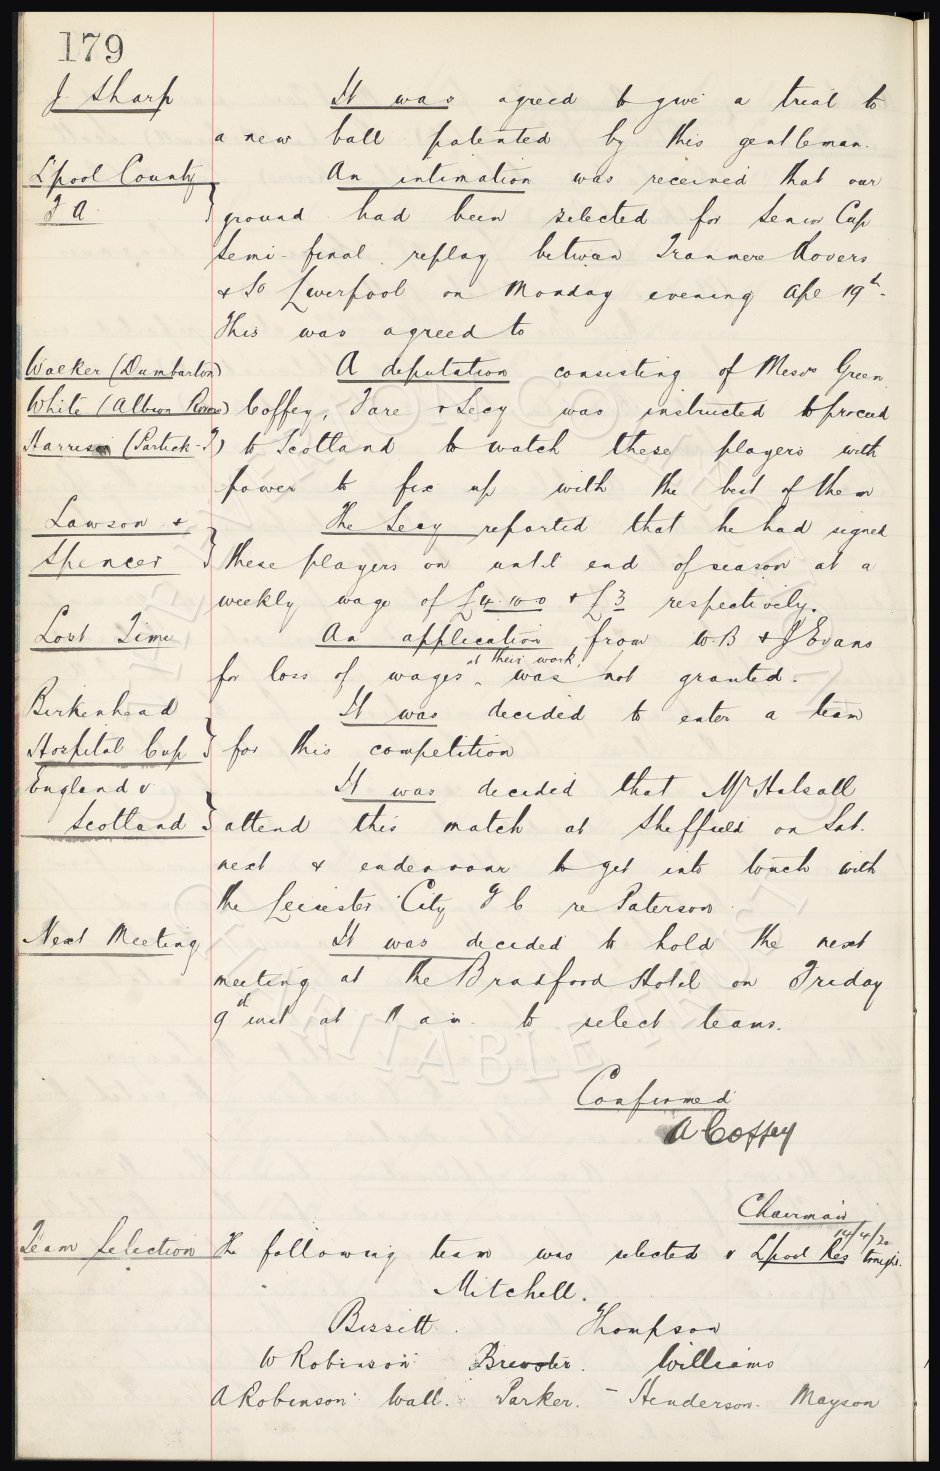 179
J Sharp It was agreed to give a trial to
a new ball patented by this gentleman.
L'pool County An intimation was received that our
F A } ground had been selected for Senior Cup
Semi-final replay between Tranmere Rovers
& So Liverpool on Monday evening Apl 19th.
This was agreed to
Walker (Dumbarton) A deputation consisting of Messrs Green
White (Albion Rovers) Coffey, Fare & Secy was instructed to proceed
Harrison (Partick T) to Scotland to watch these players with
power to fix up with the best of them
Lawson & The Secy reported that he had signed
Spencer } these players on until end of season at a
weekly wage of £4.10.0 & £3 respectively.
Lost Time An application from W B & J Evans
for loss of wages at their work was not granted.
Birkenhead It was decided to enter a team
Hospital Cup } for this competition
England v It was decided that Mr Halsall
Scotland } attend this match at Sheffield on Sat.
next & endeavour to get into touch with
the Leicester City F C re Paterson
Next Meeting It was decided to hold the next
meeting at the Bradford Hotel on Friday
9th inst at 11 am to select teams.
Confirmed
A Coffey
Chairman
14/4/20
Team Selection The following team was selected v L'pool Res tonight.
Mitchell.
Bissitt. Thompson
W Robinson Brewster. Williams
A Robinson Wall. Parker. - Henderson. Mayson
EVERTON
CHARITABLE TRUST